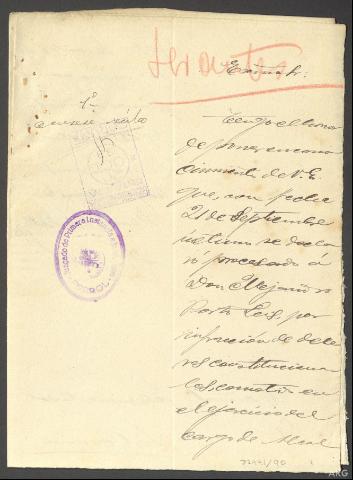 Excmo Sr:
1ª
Tengo el honor
de poner en cono
cimiento de V. E.
que, con fecha
21 de Septiembre
último se decla
ró procesado á
Don Alejandro
Porto Leis, por
infracción de debe
res constituciona
les, cometida en
el ejercicio del
cargo de Alcal
Juzgado de Primera Instancia
72941/90
ARG